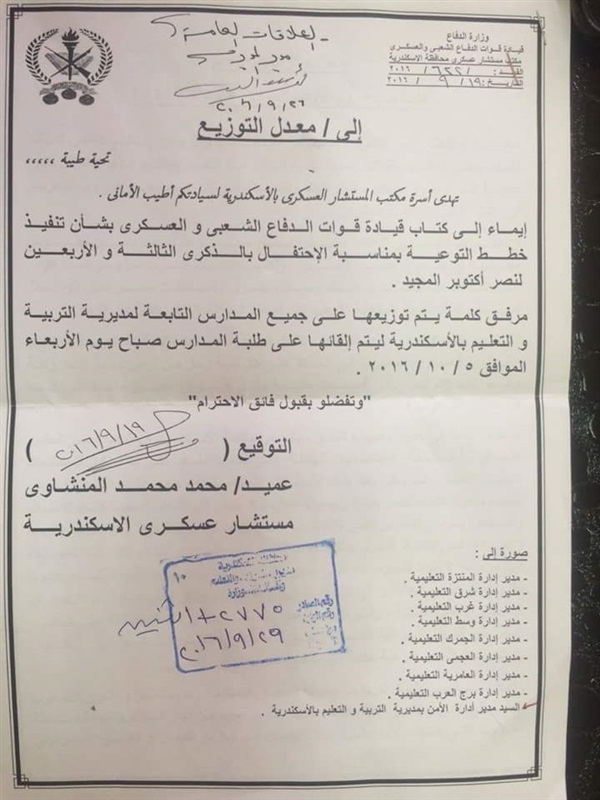 وزارة الدفاع
قيادة قوات الدفاع الشعبى والعسكرى
مكتب مستشار عسكرى محافظة الاسكندرية
القيد : / ٦٢٢ / ٢٠١٦
التاريخ : ١٩ / ٩ / ٢٠١٦
العلاقات العامة
٢٠١٦/٩/٢٦
إلى / معدل التوزيع
تحية طيبة ,,,,,
تهدى أسرة مكتب المستشار العسكرى بالأسكندرية لسيادتكم أطيب الأمانى .
إيماء إلى كتاب قيادة قوات الدفاع الشعبى و العسكرى بشأن تنفيذ
خطط التوعية بمناسبة الإحتفال بالذكرى الثالثة و الأربعين
لنصر أكتوبر المجيد .
مرفق كلمة يتم توزيعها على جميع المدارس التابعة لمديرية التربية
و التعليم بالأسكندرية ليتم إلقائها على طلبة المدارس صباح يوم الأربعاء
الموافق ٥ / ١٠ / ٢٠١٦ .
"وتفضلو بقبول فائق الاحترام"
التوقيع ( ٢٠١٦/٩/١٩ )
عميد/ محمد محمد المنشاوى
مستشار عسكرى الاسكندرية
صورة إلى :
- مدير إدارة المنتزة التعليمية .
- مدير إدارة شرق التعليمية .
- مدير إدارة غرب التعليمية .
- مدير إدارة وسط التعليمية .
- مدير إدارة الجمرك التعليمية .
- مدير إدارة العجمى التعليمية .
- مدير إدارة العامرية التعليمية .
- مدير إدارة برج العرب التعليمية .
- السيد مدير أدارة الأمن بمديرية التربية و التعليم بالأسكندرية .
١٥
رقم الصادر
٢٧٧٥
٢٠١٦/٩/٢٩